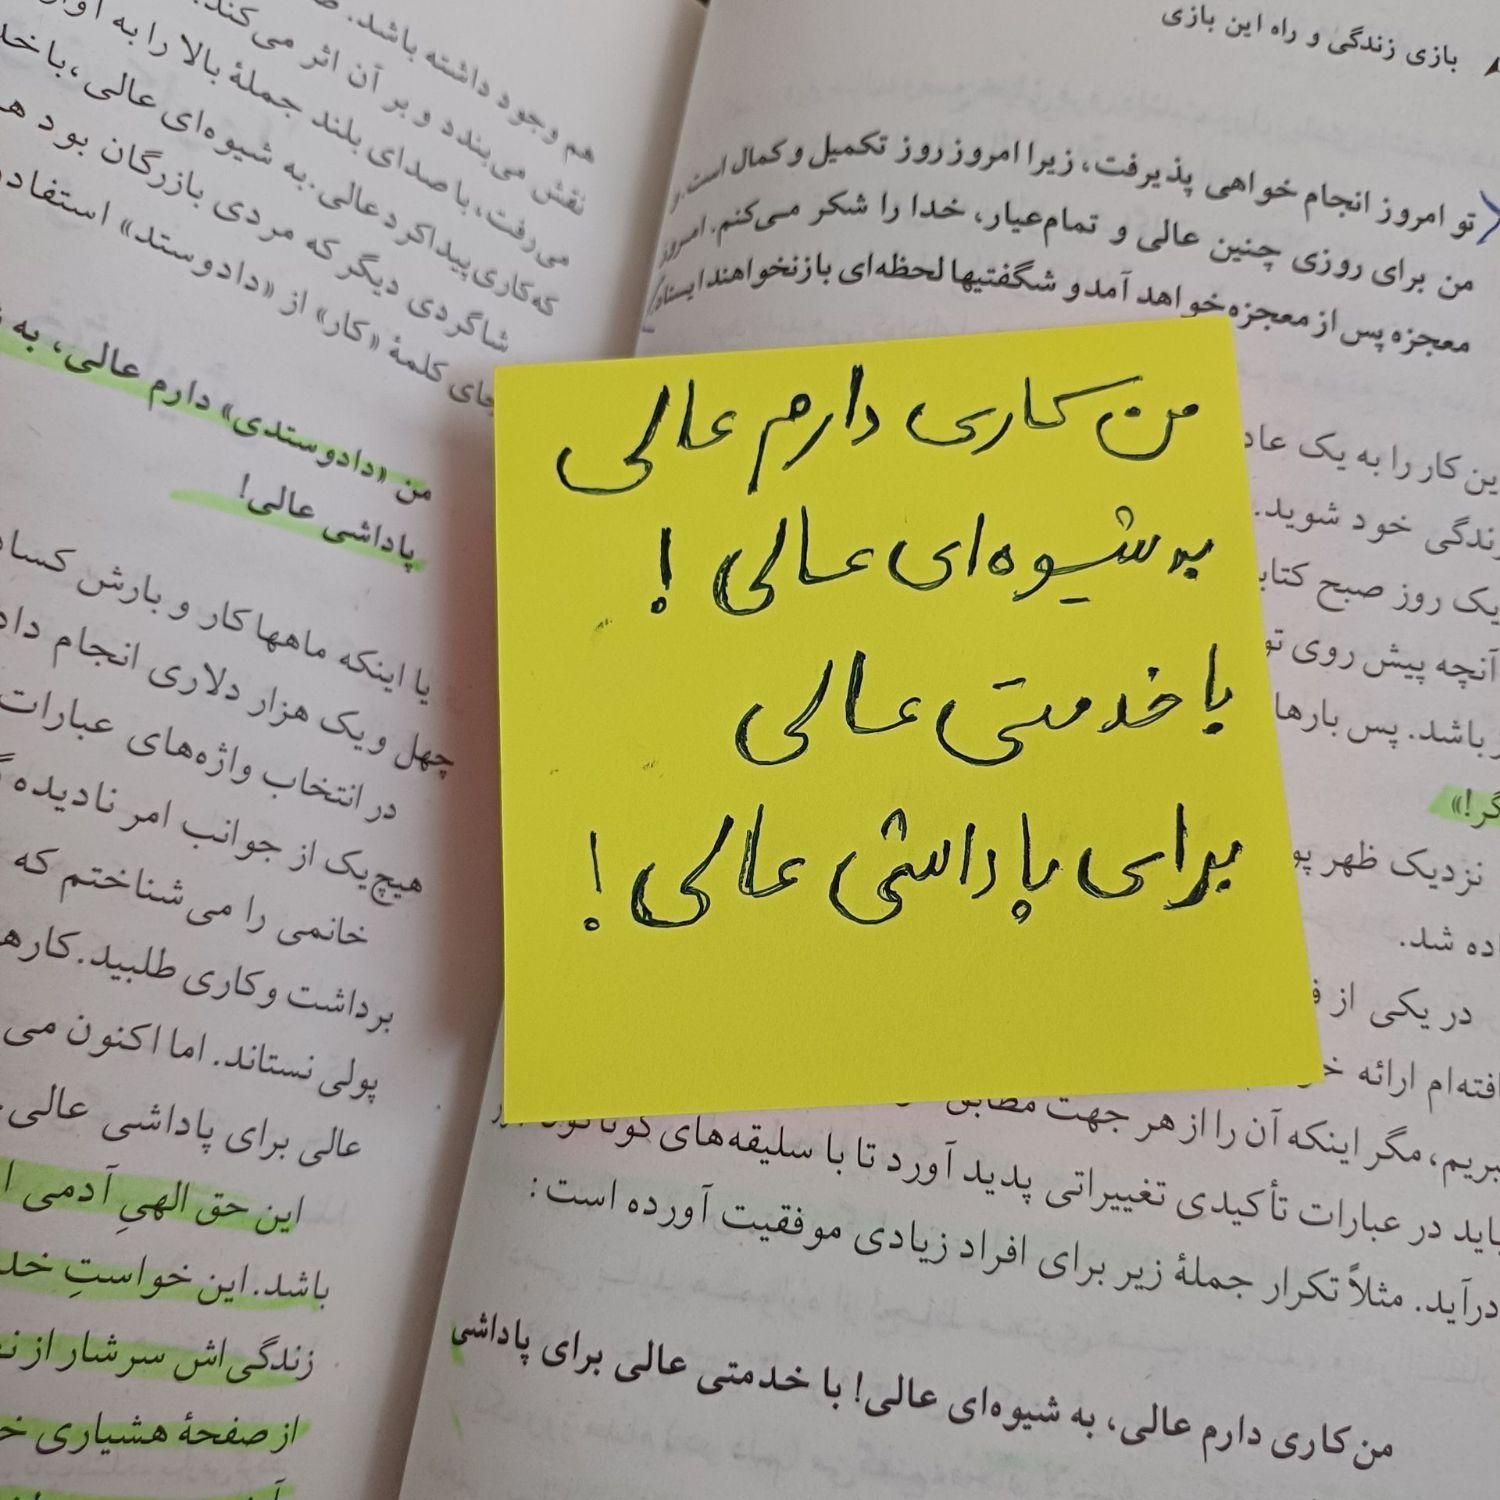 بازی زندگی و راه این بازی
تو امروز انجام خواهی پذیرفت، زیرا امروز روز تکمیل و کمال است. و
من برای روزی چنین عالی و تمام‌عیار، خدا را شکر می‌کنم. امروز
معجزه پس از معجزه خواهد آمد و شگفتیها لحظه‌ای بازنخواهند ایستاد
من کاری دارم عالی
به شیوه‌ای عالی !
با خدمتی عالی
برای پاداشی عالی !
این کار را به یک
زندگی خود شوید.
یک روز صبح
آنچه پیش روی
باشد. پس بارها
نزدیک ظهر
داده شد.
در یکی از
ارائه
مگر اینکه آن را از هر جهت مطابق
باید در عبارات تأکیدی تغییراتی پدید آورد تا با سلیقه‌های گوناگون
درآید. مثلاً تکرار جملهٔ زیر برای افراد زیادی موفقیت آورده است:
من کاری دارم عالی، به شیوه‌ای عالی! با خدمتی عالی برای پاداشی
هم وجود داشته باشد.
نقش می‌بندد و بر آن اثر می‌کند.
می‌رفت، با صدای بلند جملهٔ بالا را به
که کاری پیدا کرد عالی. به شیوه‌ای عالی، با
شاگردی دیگر که مردی بازرگان بود
جای کلمهٔ «کار» از «دادوستد»
من «دادوستدی» دارم عالی، به
پاداشی عالی!
با اینکه ماهها کار و بارش
چهل و یک هزار دلاری انجام
در انتخاب واژه‌های عبارات
هیچ‌یک از جوانب امر نادیده
خانمی را می‌شناختم که
برداشت و کاری طلبید.
پولی نستاند. اما اکنون می
عالی برای پاداشی عالی.
این حق الهیِ آدمی
باشد. این خواستِ
زندگی‌اش سرشار از
از صفحهٔ هشیاری